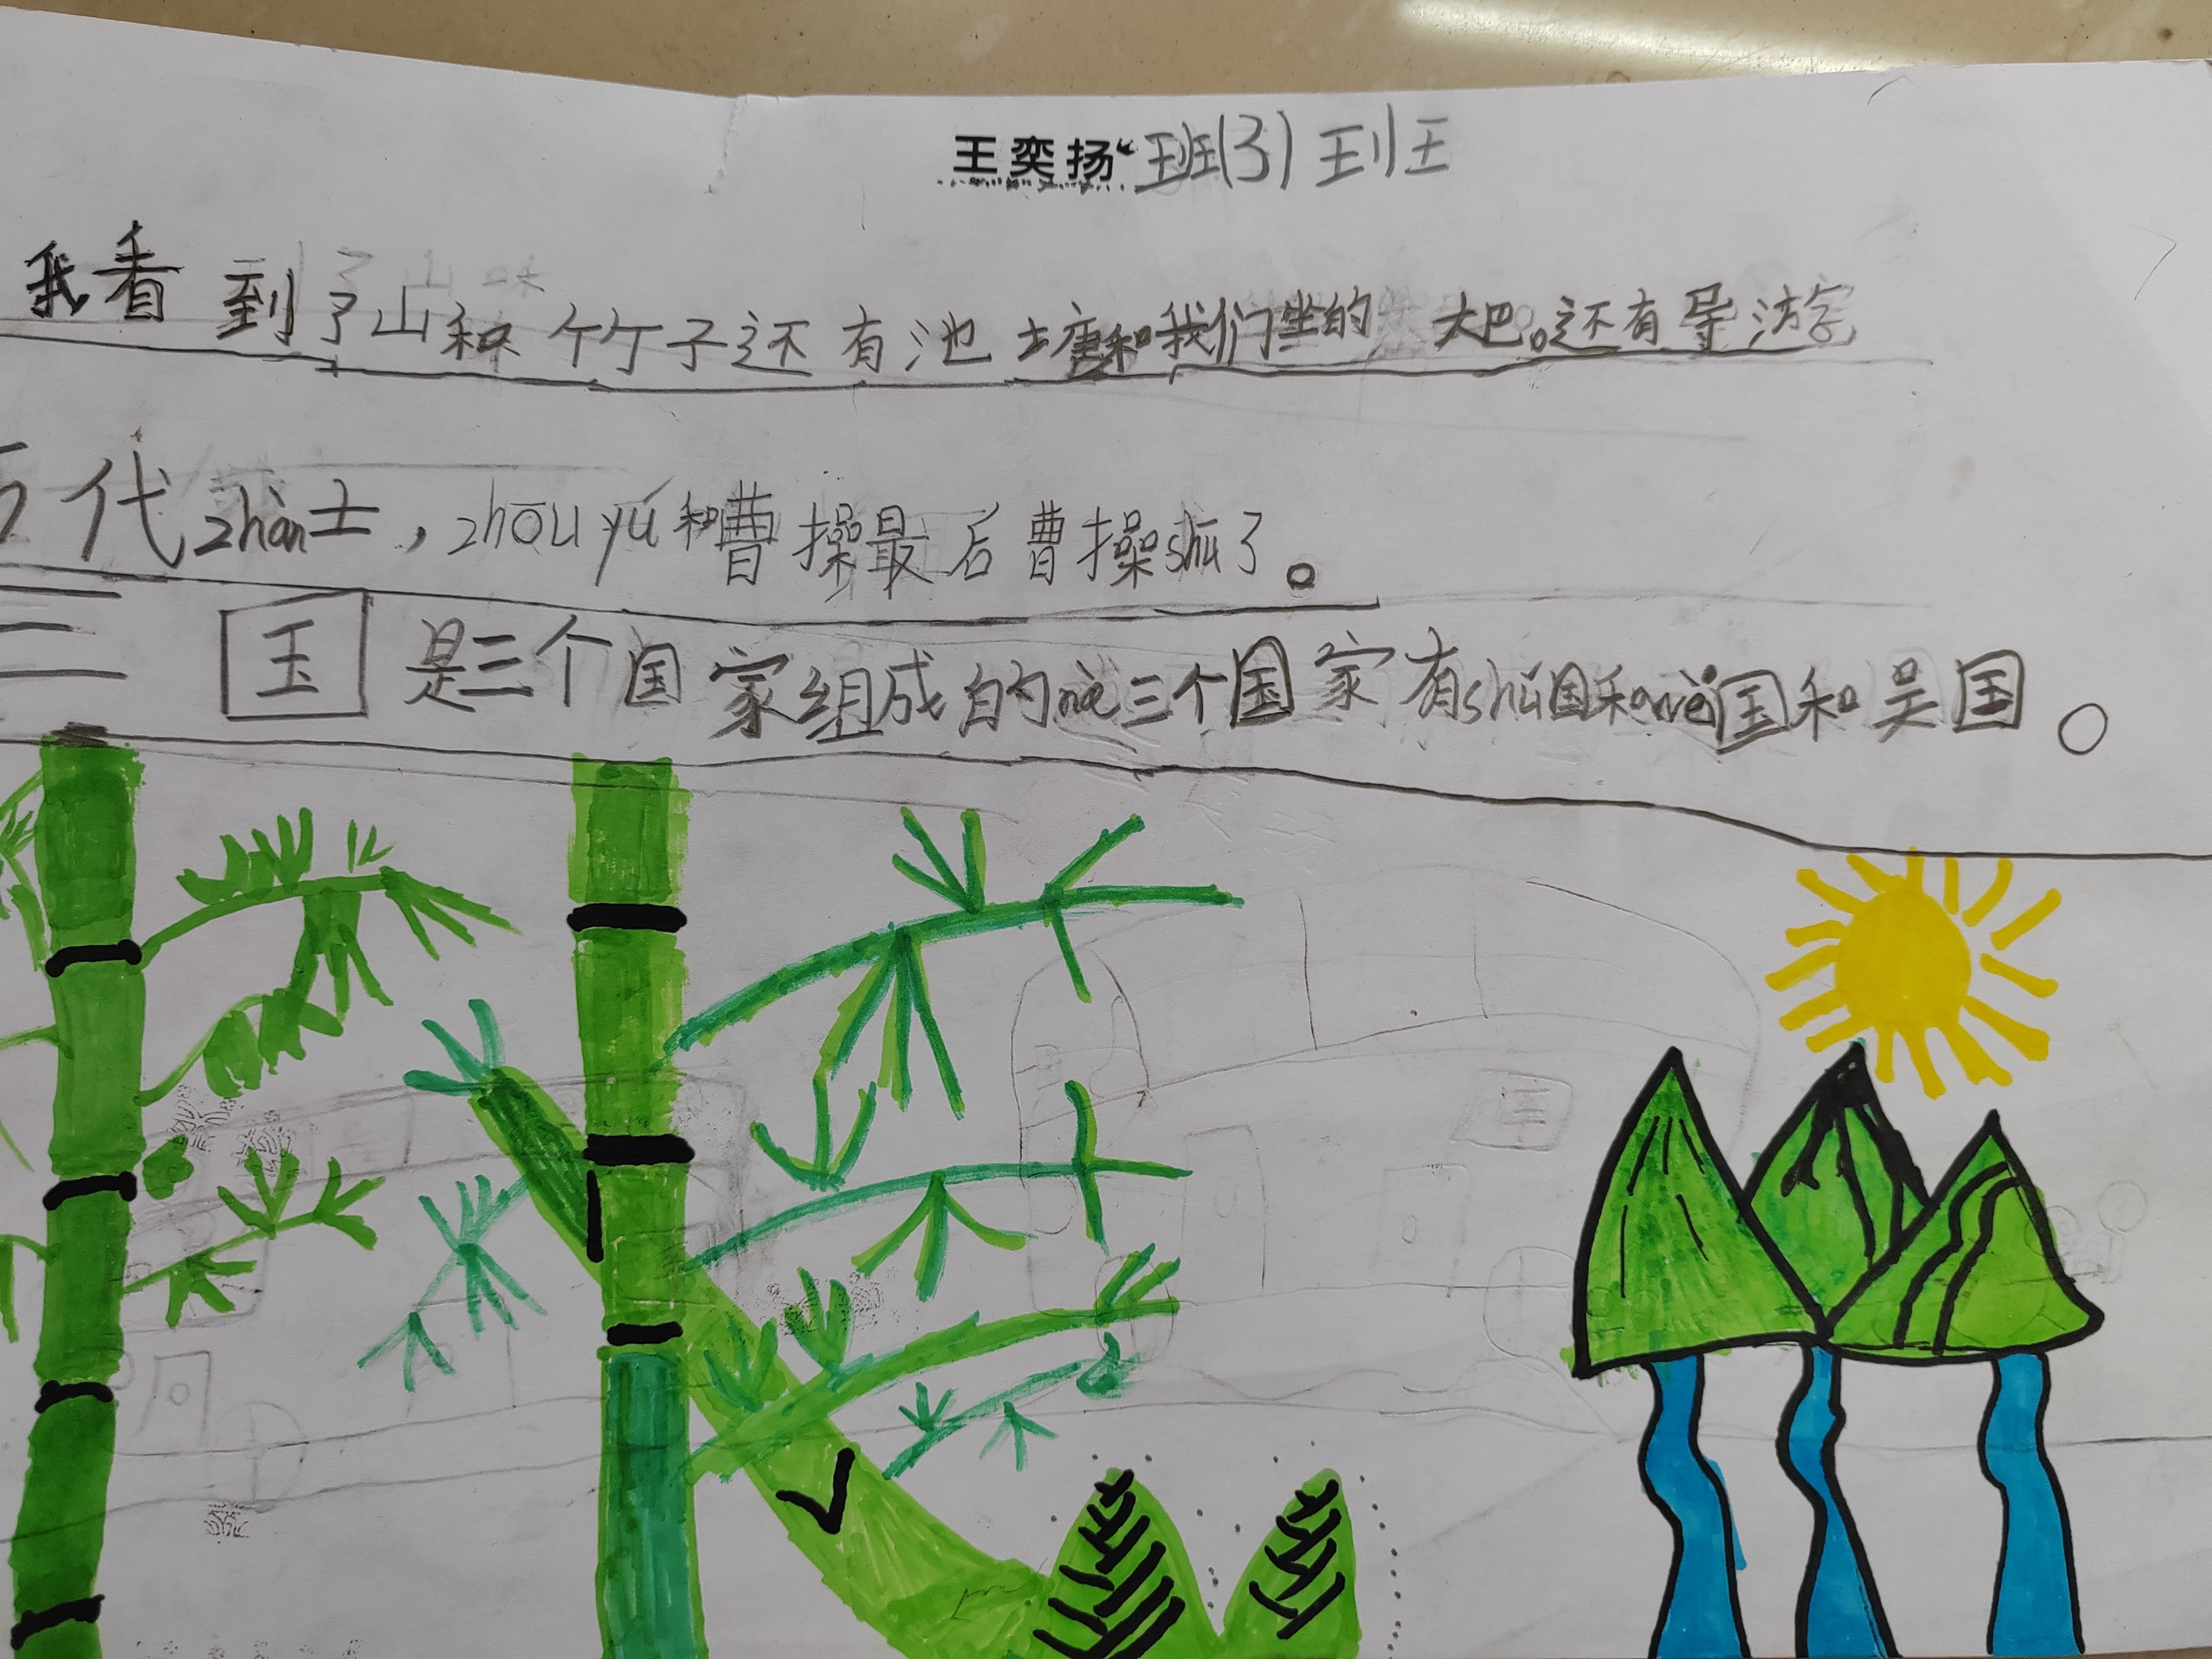 王奕扬 班(3)班
我看到了山和竹子还有池土唐和我们坐的大巴。还有导游
代zhàn士，zhōu yú和曹操最后曹操shū了。
三国是三个国家组成的nà三个国家有shǔ国和wèi国和吴国。